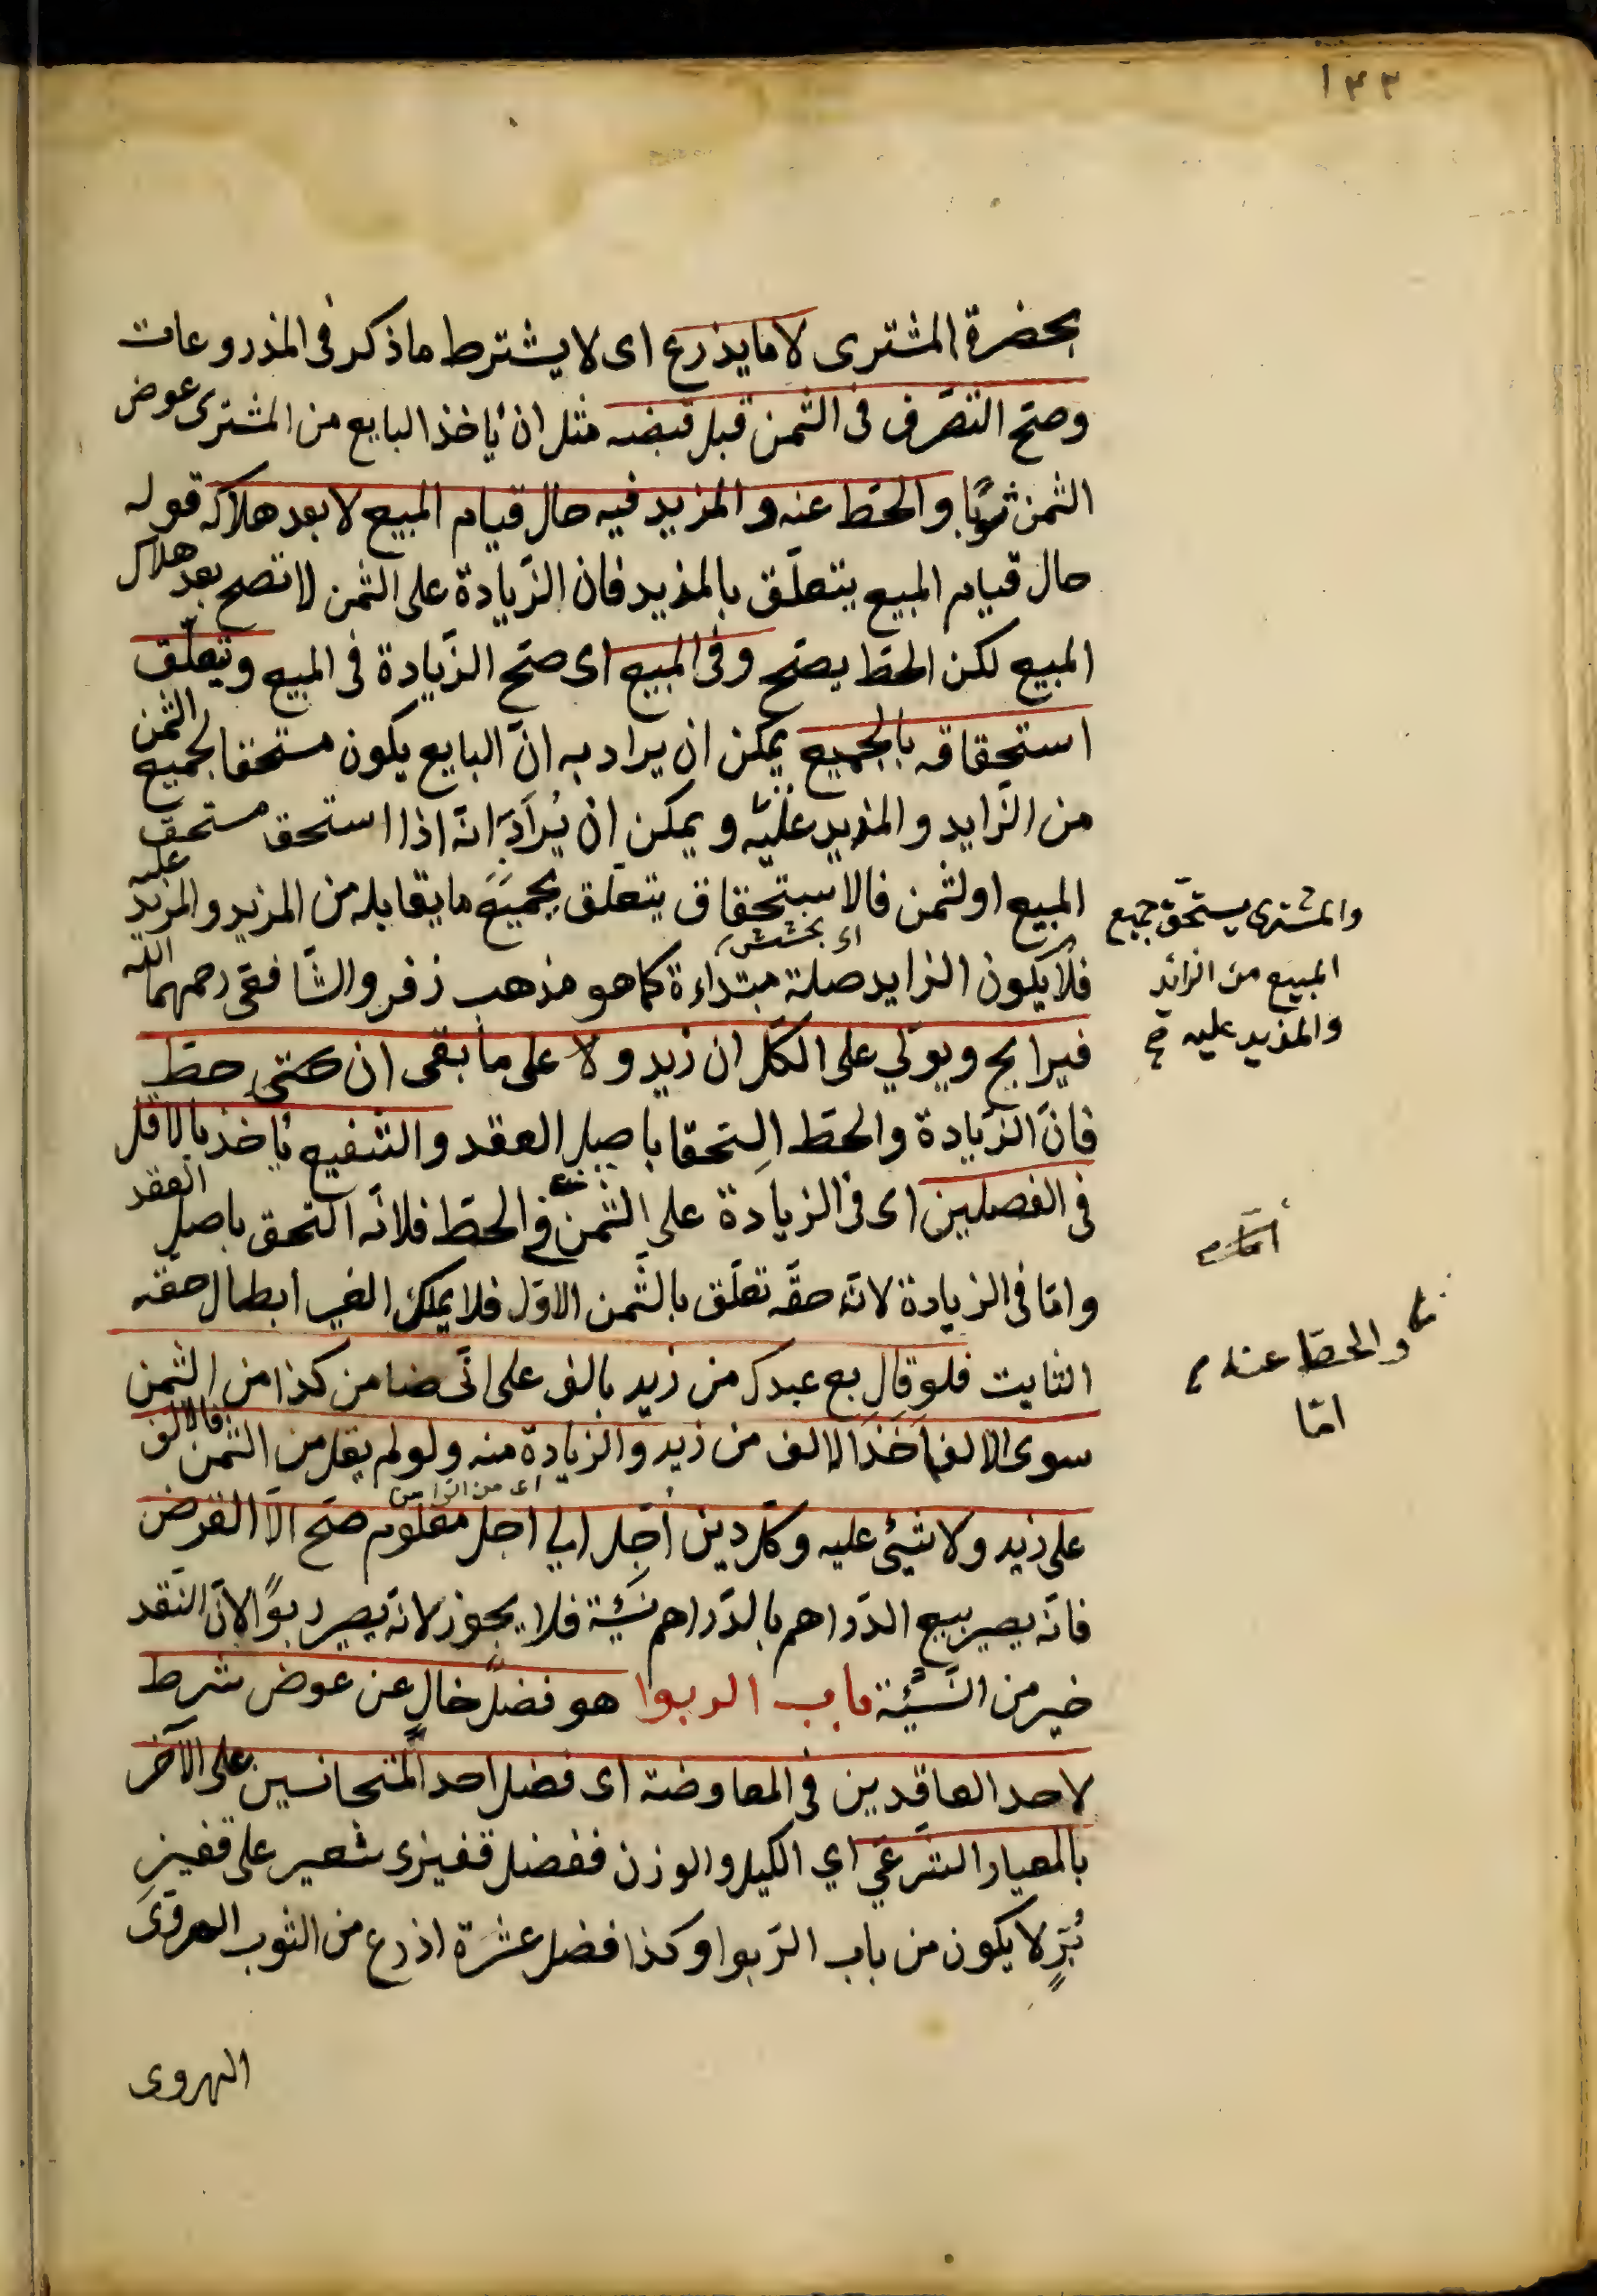 ١٣٣
بحضرة المشترى لا ما يذرع اى لا يشترط ما ذكر فى المذروعات
وصحّ التصرّف فى الثمن قبل قبضه مثل ان ياخذ البايع من المشترى عوض
الثمن ثوبًا والحطّ عنه والمزيد فيه حال قيام المبيع لا بعد هلاكه قوله
حال قيام المبيع يتعلّق بالمزيد فان الزّيادة على الثمن لا تصح بعد هلاك
المبيع لكن الحطّ يصحّ وفى المبيع اى صحّ الزّيادة فى المبيع ويتعلّق
استحقاقه بالجميع يمكن ان يراد به انّ البايع يكون مستحقا لجميع الثمن
من الزّايد والمزيد عليه ويمكن ان يُراد انّه اذا استحق مستحق
المبيع او لثمن فالاستحقاق يتعلّق بجميع ما يقابله من المزيد والمزيد عليه
اى بخشش
فلا يكون الزايد صلة مبتداءة كما هو مذهب زفر والشّافعى رحمهما الله
فيرابح ويولّي على الكلّ ان زيد ولا على ما بقى ان حطّ
فانّ الزّيادة والحطّ التحقا باصل العقد والشفيع ياخذ بالاقل
فى الفصلين اى فى الزيادة على الثمن فى الحطّ فلانّه التحق باصل العقد
وامّا فى الزيادة لانّه حقّه تعلّق بالثّمن الاوّل فلا يملك الغير ابطال حقّه
الثابت فلو قال بع عبدك من زيد بالف على انّى ضامن كذا من الثمن
سوى الالف اخذ الالف من زيد والزيادة منه ولو لم يقل من الثمن فالالف
على زيد ولا شيئ عليه وكلّ دين اجّل الي اجل معلوم صحّ الّا القرض
فانّه يصير بيع الدّراهم بالدّراهم نسيئة فلا يجوز لانّه يصير ربوًا لانّ النّقد
خير من النّسيئة باب الربوا هو فضل خالٍ عن عوض شرط
لاحد العاقدين فى المعاوضة اى فضل احد المتجانسين على الآخر
بالمعيار الشّرعّي اي الكيل والوزن ففضل قفيزى شعير على قفيز
بُرّ لا يكون من باب الرّبوا وكذا فضل عشرة اذرع من الثوب الهروى
الهروى
والمشترى يستحقّ جميع
المبيع من الزائد
والمزيد عليه
والحطّ عنه
امّا